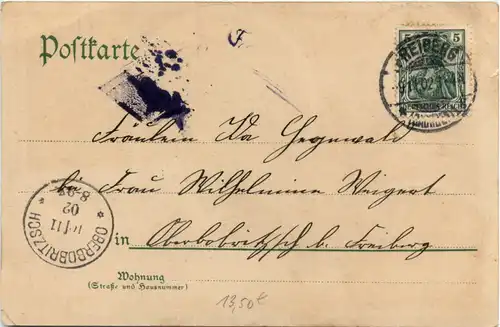 Postkarte
5 5
FREIBERG
DEUTSCHES REICH
Fräulein Ida Hegewald
Frau Wilhelmine Weigert
8-9
02
11
OBERBOBRITZSCH
in Oberbobritzsch b. Freiberg
Wohnung
(Straße und Hausnummer)
13,50€